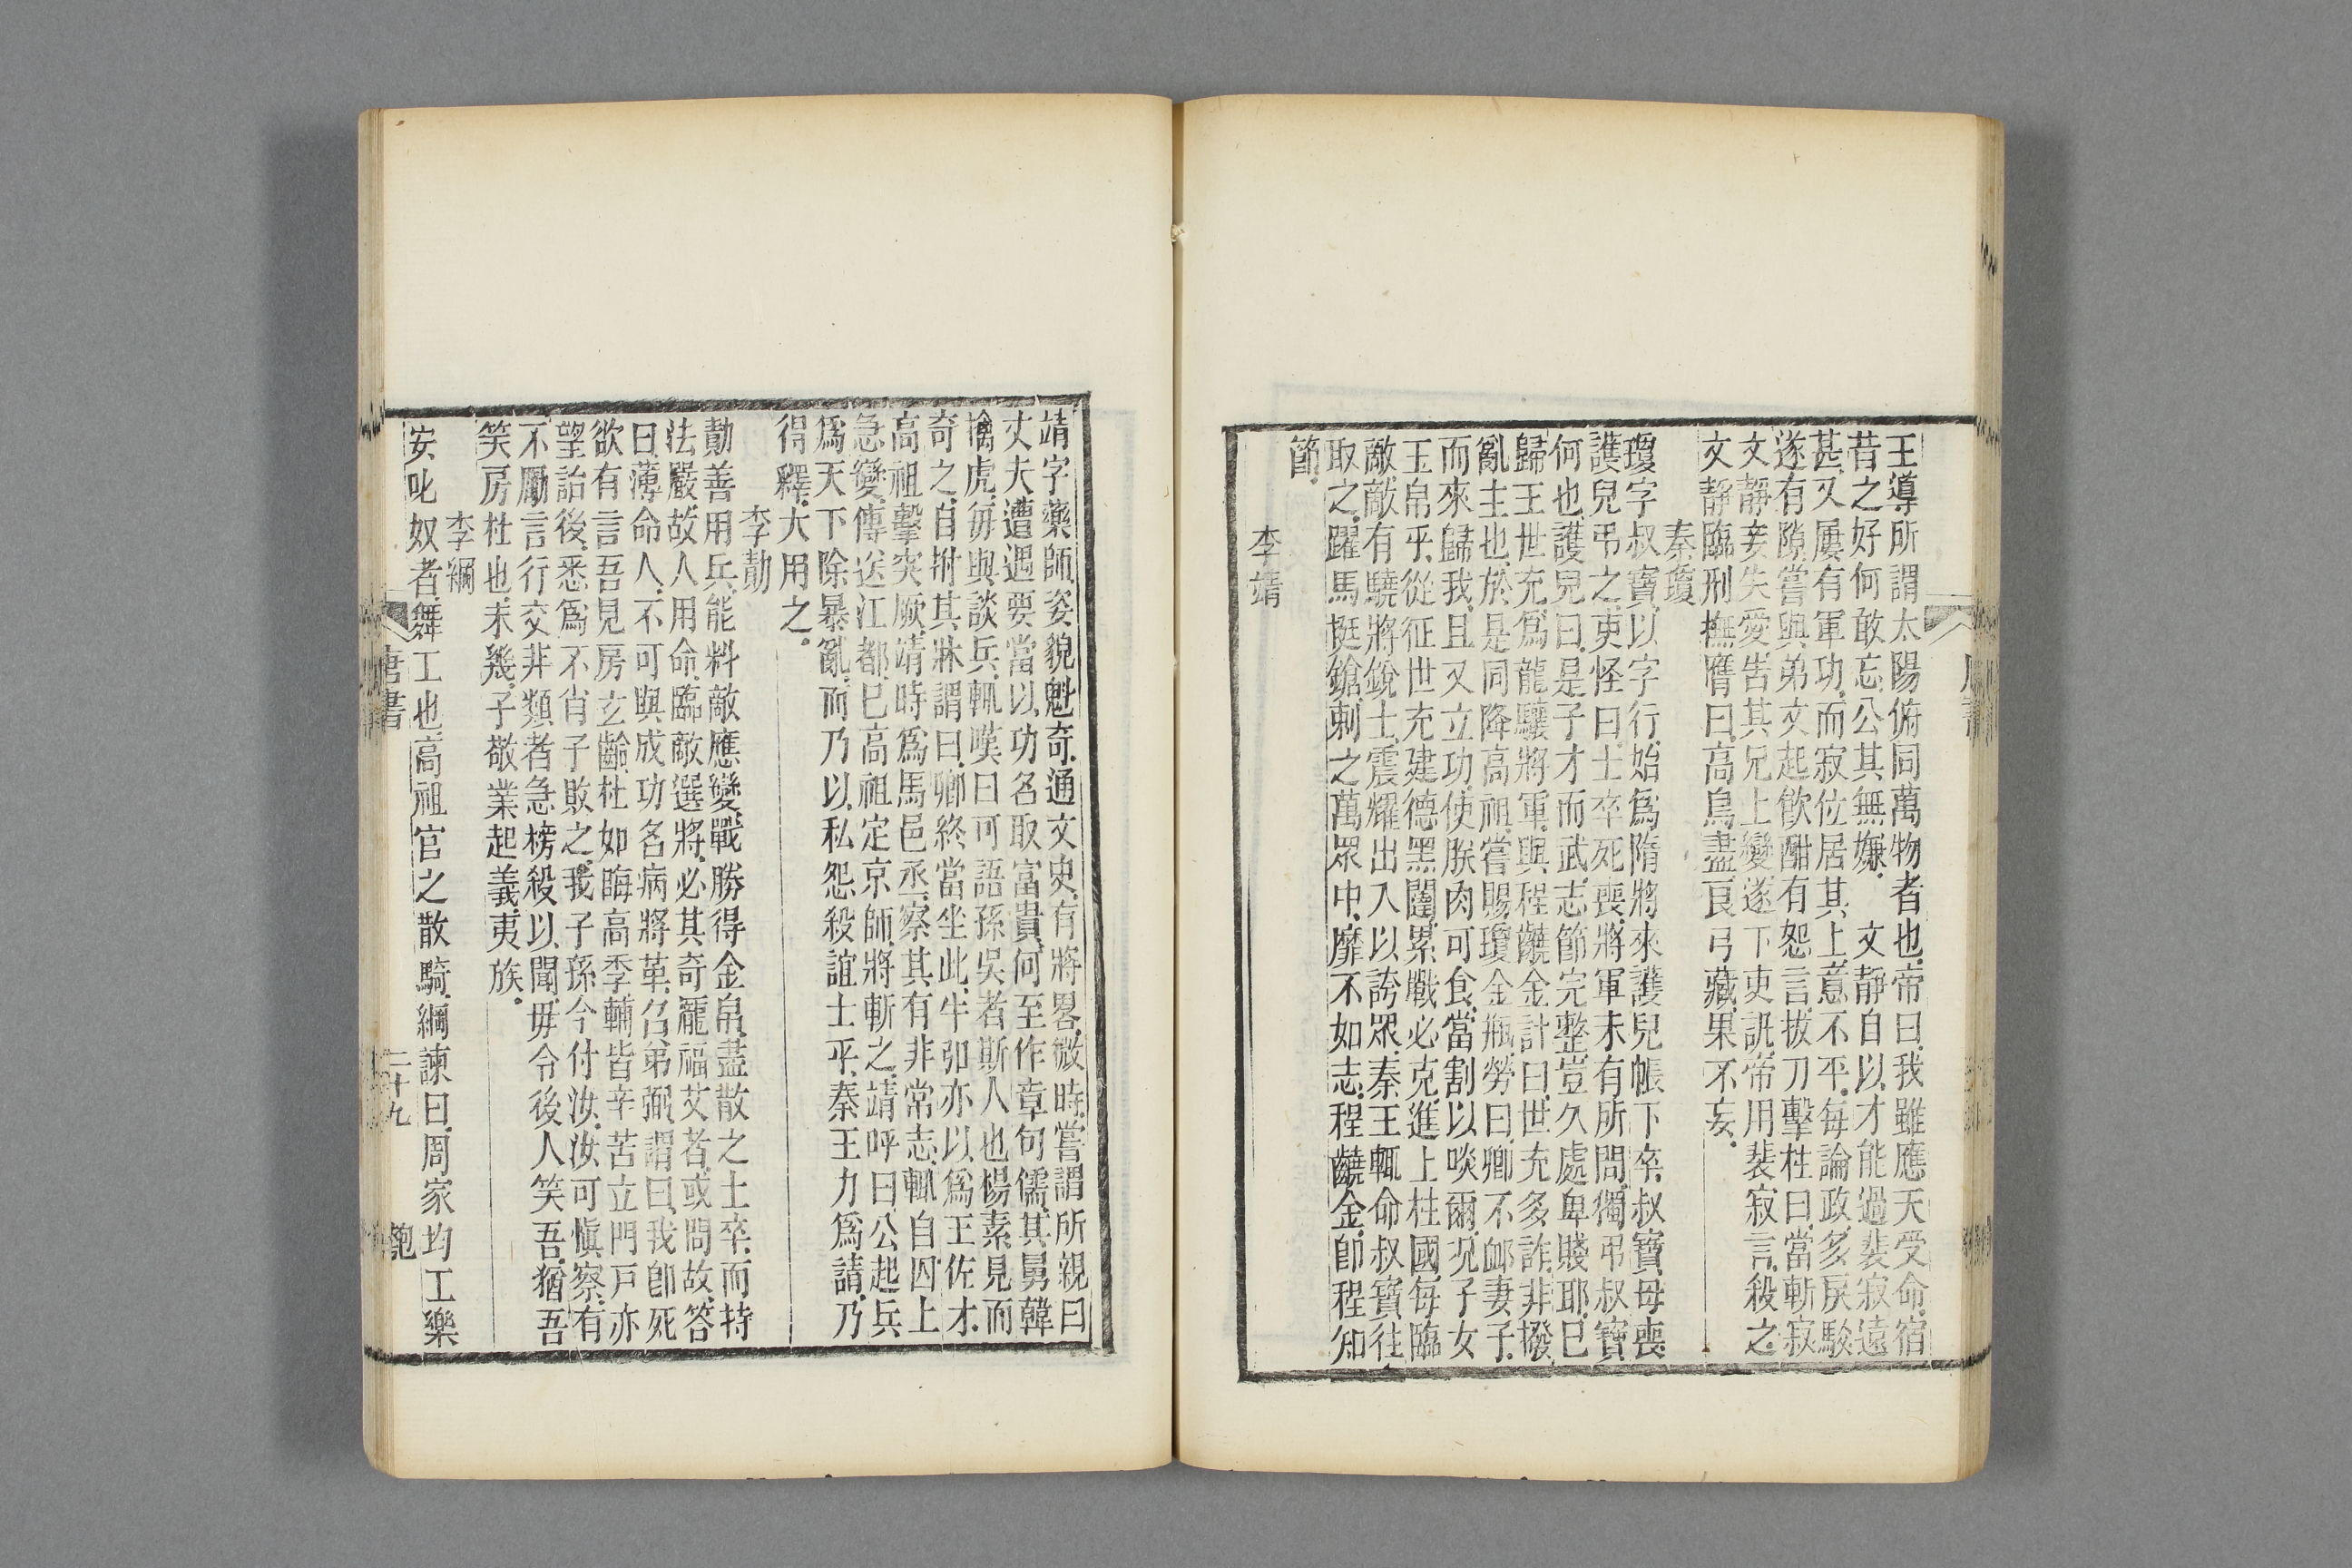 王導所謂太陽俯同萬物者也帝曰我雖應天受命宿
昔之好何敢忘公其無嫌 文靜自以才能過裴寂遠
甚又屢有軍功而寂位居其上意不平每論政多戾駮
遂有隙嘗與弟文起飮酣有怨言拔刀擊柱曰當斬寂
文靜妾失愛告其兄上變遂下吏訊帝用裴寂言殺之
文靜臨刑撫膺曰高鳥盡良弓藏果不妄
秦瓊
瓊字叔寶以字行始爲隋將來護兒帳下卒叔寶母喪
護兒弔之吏怪曰士卒死喪將軍未有所問獨弔叔寶
何也護兒曰是子才而武志節完整豈久處卑賤耶已
歸王世充爲龍驤將軍與程齩金計曰世充多詐非撥
亂主也於是同降高祖嘗賜瓊金瓶勞曰卿不䘏妻子
而來歸我且又立功使朕肉可食當割以啖爾况子女
玉帛乎從征世充建德黑闥累戰必克進上柱國每臨
敵敵有驍將銳士震耀出入以誇眾秦王輒命叔寶往
取之躍馬挺鎗刺之萬眾中靡不如志程齩金卽程知
節
李靖
靖字藥師姿貌魁奇通文史有將畧微時嘗謂所親曰
丈夫遭遇要當以功名取富貴何至作章句儒其舅韓
擒虎毎與談兵輒嘆曰可語孫吳者斯人也楊素見而
奇之自拊其牀謂曰卿終當坐此牛弘亦以爲王佐才
高祖擊突厥靖時爲馬邑丞察其有非常志輒自囚上
急變傳送江都已高祖定京師將斬之靖呼曰公起兵
爲天下除暴亂而乃以私怨殺誼士乎秦王力爲請乃
得釋大用之
李勣
勣善用兵能料敵應變戰勝得金帛盡散之士卒而持
法嚴故人用命臨敵選將必其奇龐福艾者或問故答
曰薄命人不可與成功名病將革召弟弼謂曰我卽死
欲有言吾見房玄齡杜如晦高季輔皆辛苦立門戸亦
望詒後悉爲不肖子敗之我子孫今付汝汝可愼察有
不厲言行交非類者急榜殺以聞毋令後人笑吾猶吾
笑房杜也未幾子敬業起義夷族
李綱
安叱奴者舞工也高祖官之散騎綱諫曰周家均工樂
唐書
二十九